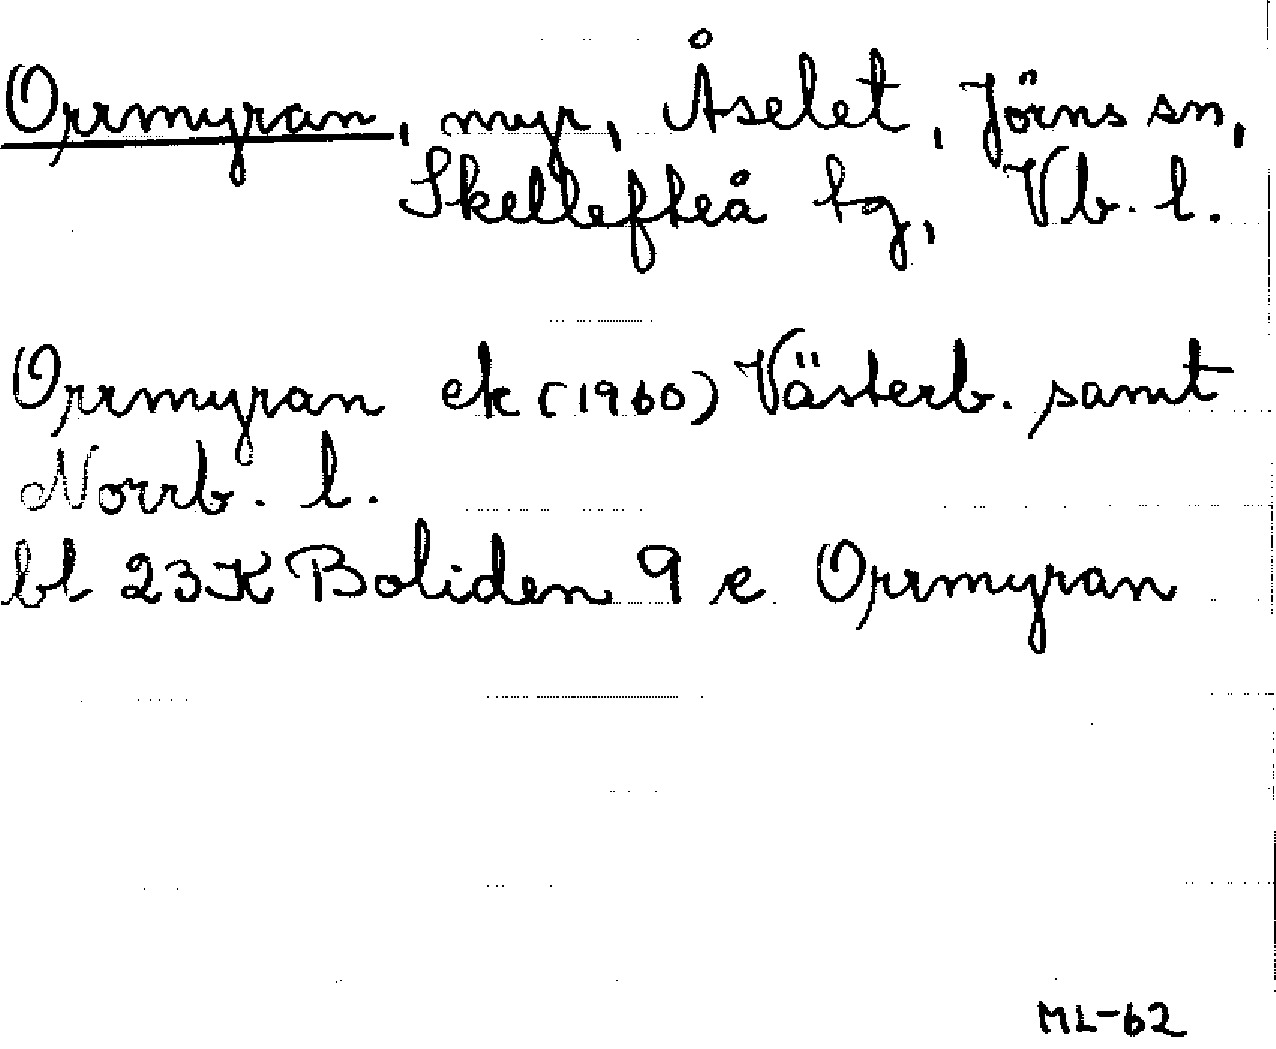 Orrmyran, myr, Åselet, Jörns sn,
Skellefteå tg, Vb. l.
Orrmyran ek (1960) Västerb. samt
Norrb. l.
bl 23K Boliden 9 e Orrmyran
ML-62